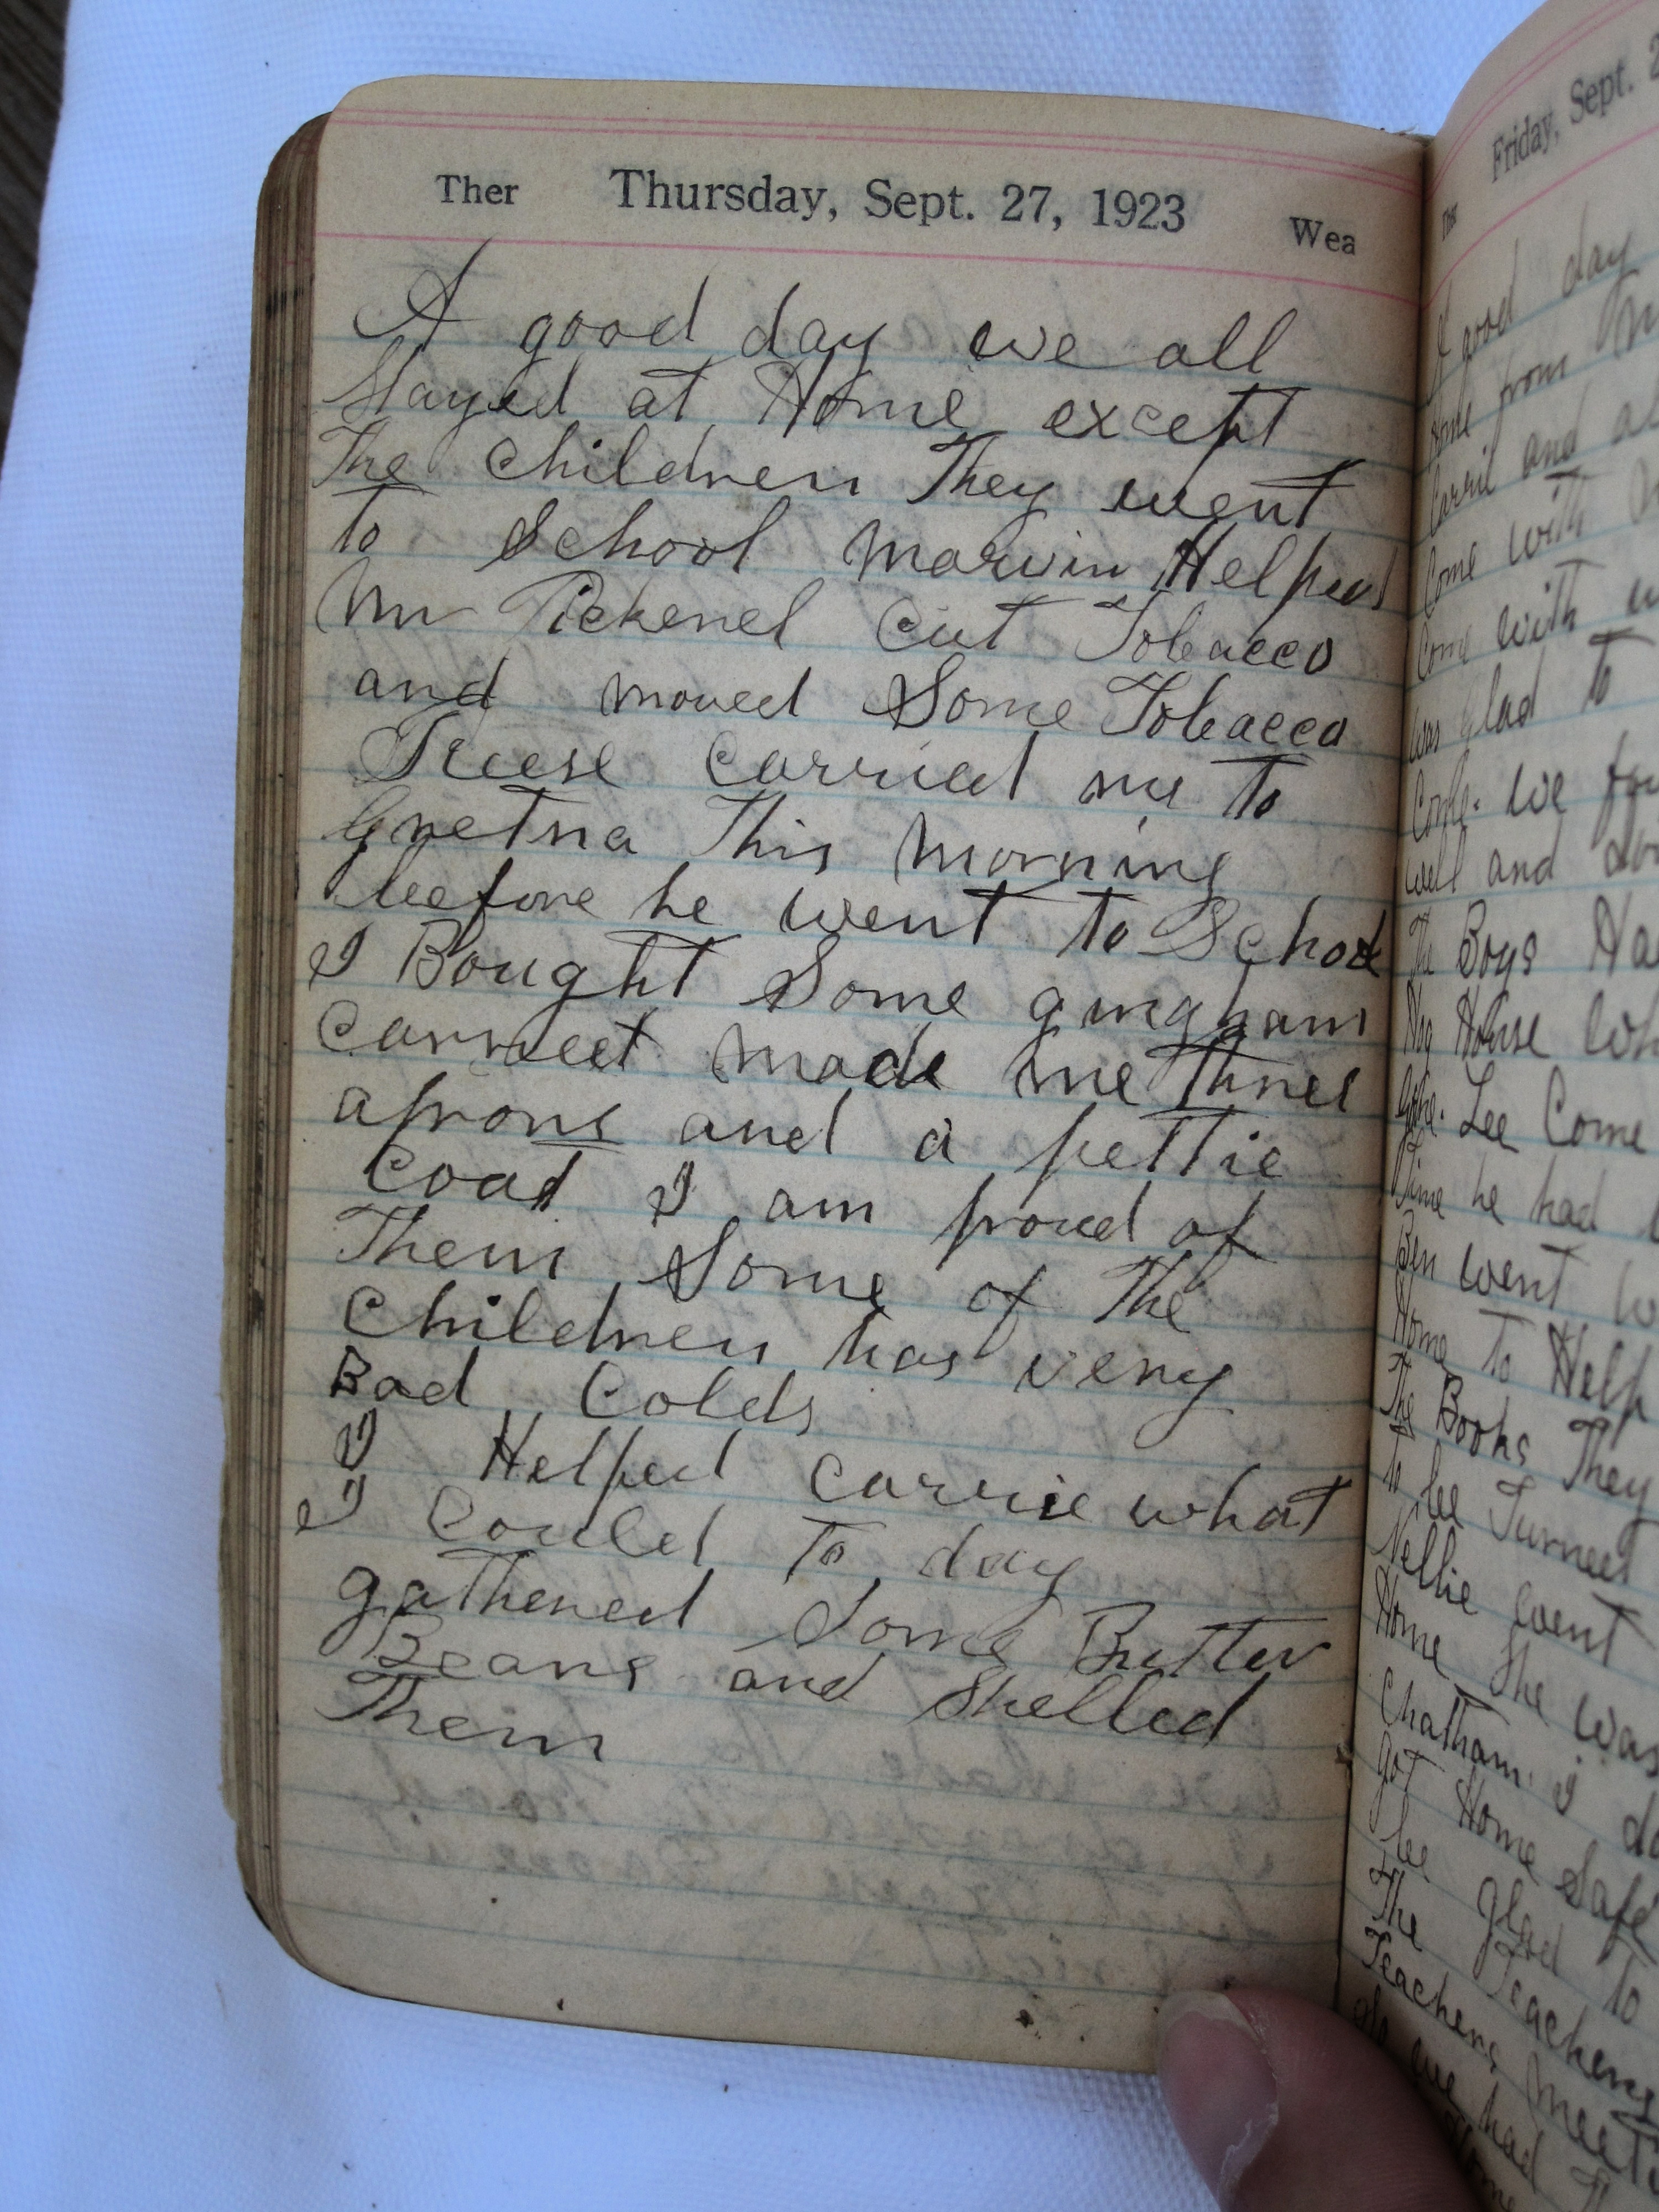 Ther Thursday, Sept. 27, 1923 Wea
A good day we all
Stayed at Home except
The Children They went
to School Marvin Helped
Mr Pickenel Cut Tobacco
and moved Some Tobacco
Treese carried me to
Gretna This Morning
before he went to School
I Bought Some gingham
Carrie made me Three
aprons and a pettie
Coat I am proud of
Them Some of The
Children has very
Bad Colds
I Helped Carrie what
I Could To day
gathered Some Butter
Beans and Shelled
Them
Friday, Sept. 2
Ther
A good day
Home from
Carrie and as
Come with
Come with
was glad to
Come. we
well and
The Boys Ha
Hog House
gone. Lee Come
Time he had
Ben went
Home to Help
The Books They
to be Turned
Nellie went
Home She was
Chatham I
got Home Safe
be glad to
The Teachers
Teachers meet
we had
Home